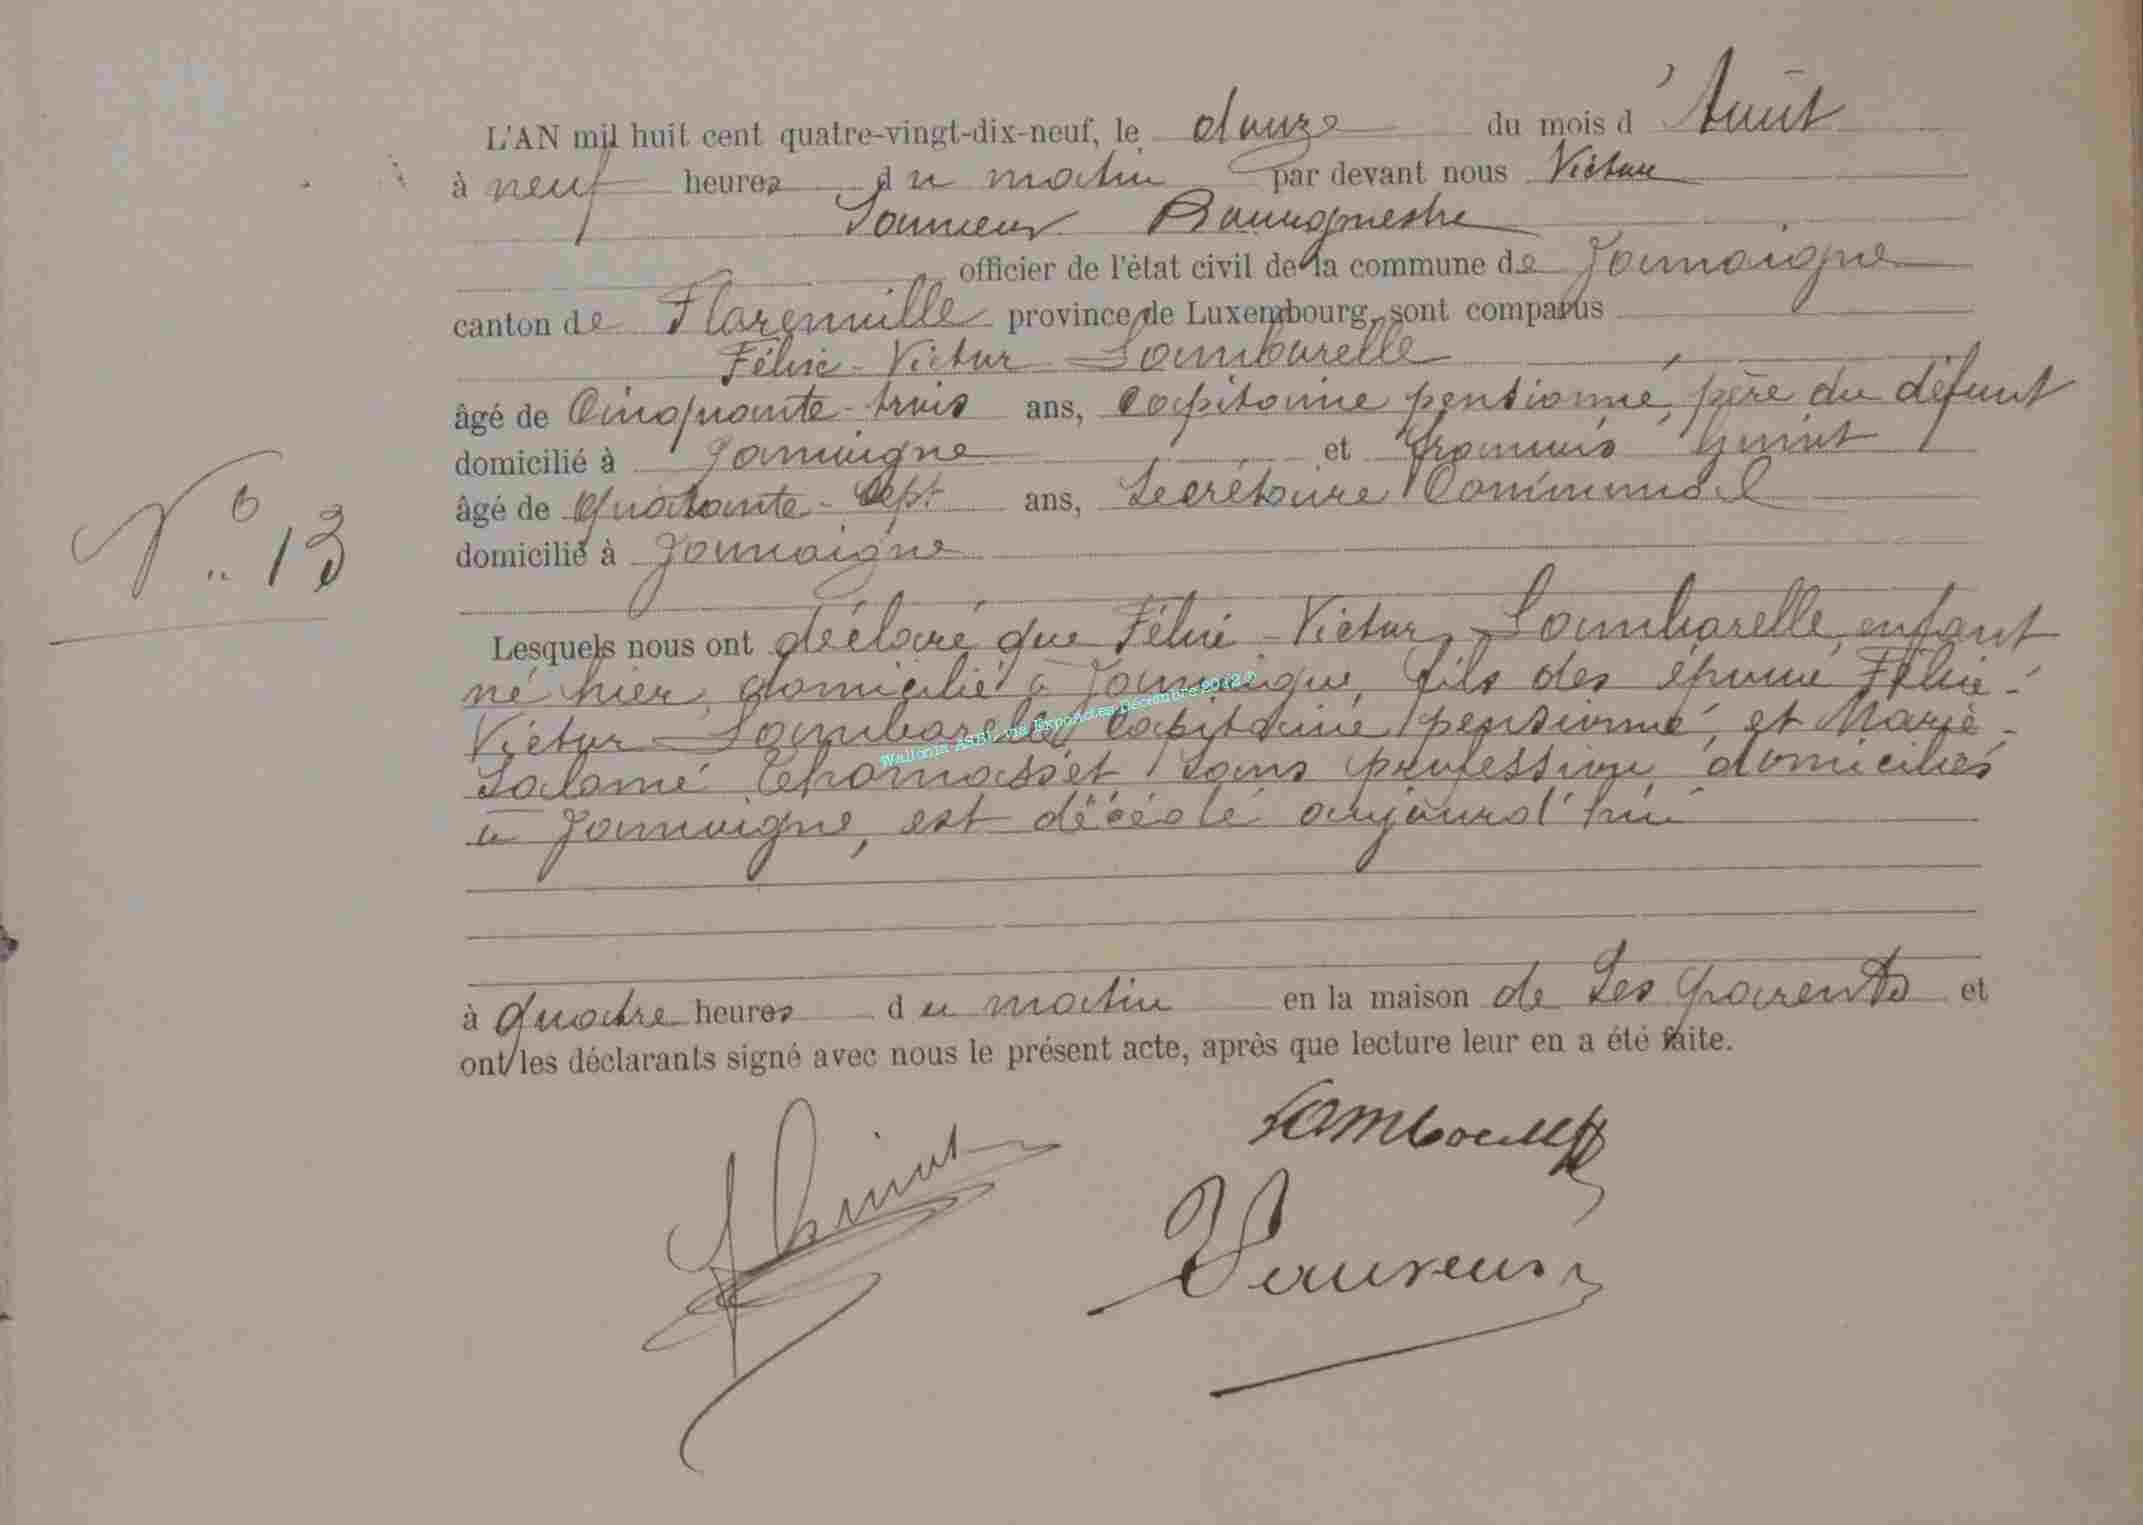 L'AN mil huit cent quatre-vingt-dix-neuf, le douze du mois d'Août
à neuf heures du matin par devant nous Victor
Bourgmestre
officier de l'état civil de la commune de Jamoigne
canton de Florenville province de Luxembourg, sont comparus
Félix-Victor Lambarelle
âgé de Cinquante-trois ans, Capitaine pensionné, père du défunt
domicilié à Jamoigne et François
âgé de quarante-sept ans, Secrétaire Communal
domicilié à Jamoigne
N° 13
Lesquels nous ont déclaré que Félix-Victor Lambarelle, enfant
né hier, domicilié à Jamoigne, fils des époux Félix-
Victor Lambarelle Capitaine pensionné, et Marie-
Salomé Thomasset sans profession, domiciliés
à Jamoigne, est décédé aujourd'hui
Wallonia ASBL via ExpoActes Décembre 2012 ©
à quatre heures du matin en la maison de ses parents et
ont les déclarants signé avec nous le présent acte, après que lecture leur en a été faite.